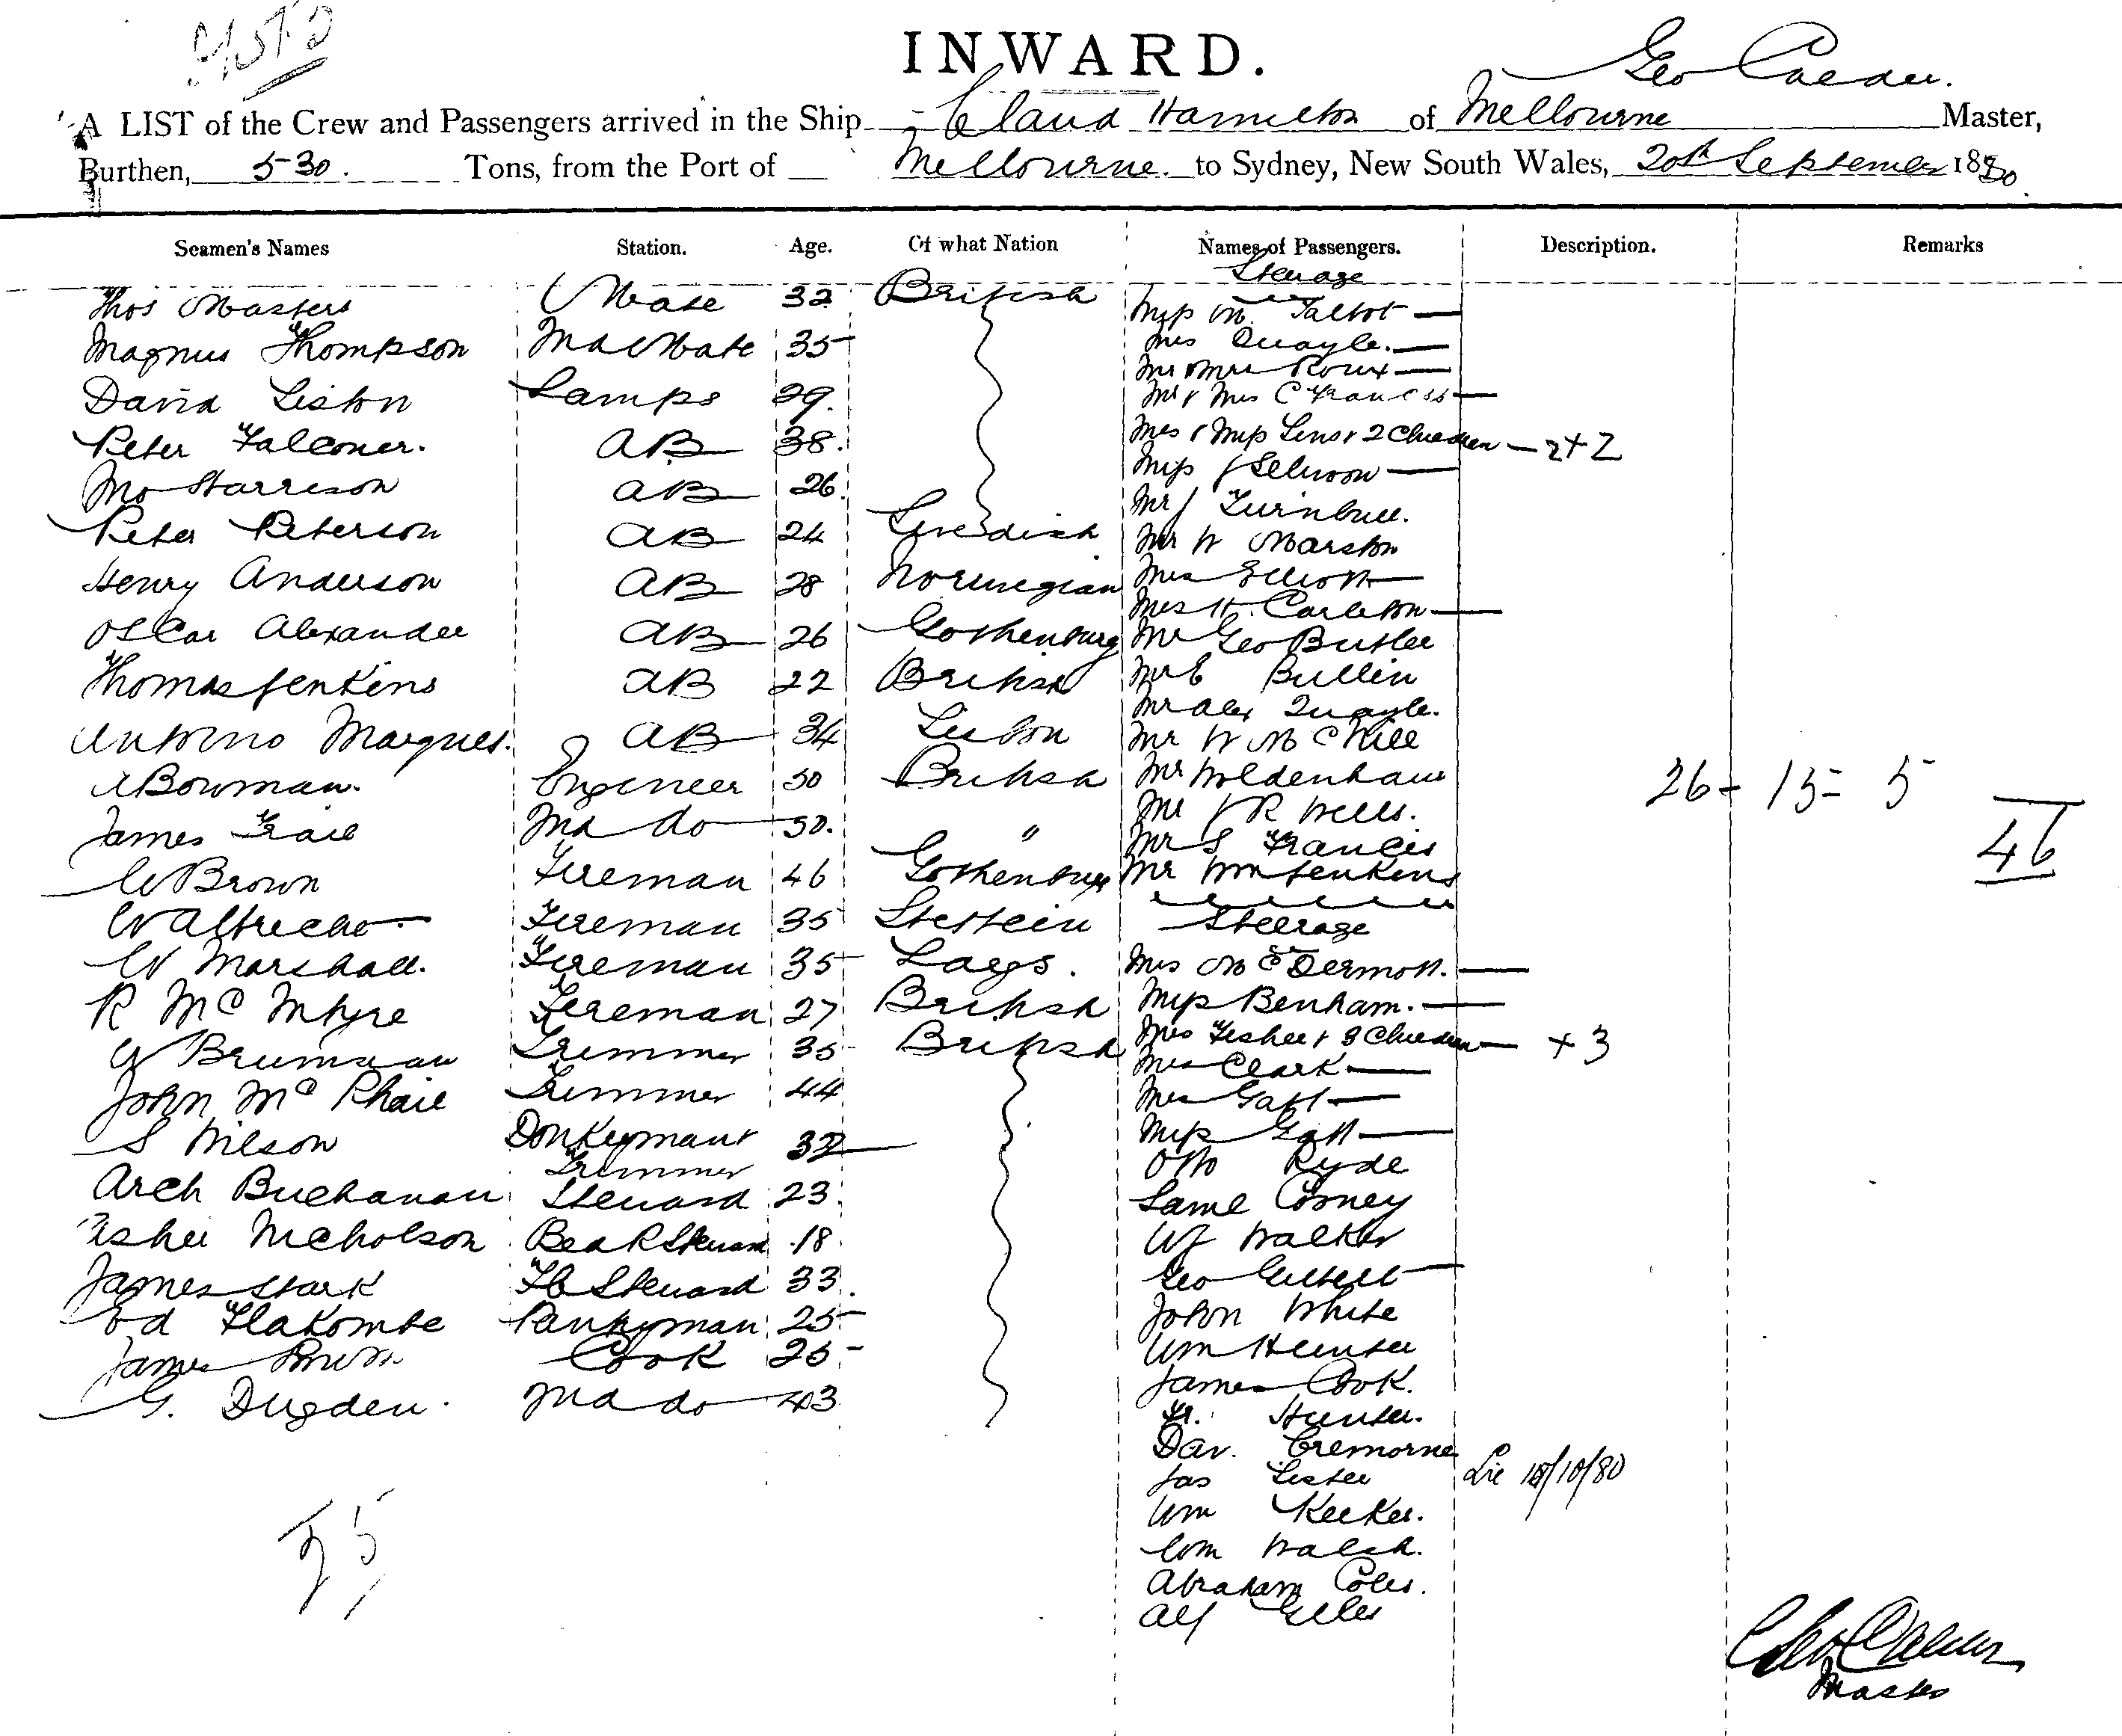 INWARD.
Geo Calder.
A LIST of the Crew and Passengers arrived in the Ship Claud Hamilton of Melbourne Master,
Burthen, 530. Tons, from the Port of Melbourne. to Sydney, New South Wales, 20th September 1880.
Seamen's Names Station. Age. Of what Nation Names of Passengers. Description. Remarks
Steerage
Thos Masters Mate 32 British Miss M. Talbot —
Magnus Thompson 2nd Mate 35 Mrs Quayle. —
Mr & Mrs Roux —
David Liston Lamps 29. Mr & Mrs C Francis —
Peter Falconer. AB 38. Mrs & Miss Lins & 2 Children — 2+2
Jno Harrison AB 26. Miss J Selwoon —
Mr J Turnbull.
Peter Peterson AB 24 Swedish Mr W Marston
Henry Anderson AB 28 Norwegian Mrs Elliott —
Mrs H. Carleton —
Oscar Alexander AB 26 Gothenburg Mr Geo Butler
Thomas Jenkins AB 22 British Mr E Bullin
Mr Alex Quayle.
Antonio Marques. AB 34 Lisbon Mr W McNeill
A Bowman. Engineer 50 British Mr Moldenhauer 26 - 15 = 5
James Frail 2nd do 50. " Mr J R Wells.
Mr S Francis 46
W Brown Fireman 46 Gothenburg Mr Wm Jenkins
W Albrecht Fireman 35 Stettein Steerage
W Marshall. Fireman 35 Largs. Mrs McDermott. —
R McIntyre Fireman 27 British Miss Benham. —
W Brumman Trimmer 35 British Mrs Fisher & 3 Children — + 3
Mrs Clark —
John McPhail Trimmer 44 Mrs Gatt —
S Wilson Donkeyman & 32 Miss Gatt —
Trimmer Otto Ryde
Arch Buchanan Steward 23. Saml Corney
Nicholson Bed R Steward 18. W J Walker
James Stark F C Steward 33. Geo Gilbert
Ed Flakombe Pantryman 25 John White
James Brown Cook 25 Wm Hunter
G. Dugden. 2nd do 43 James Cook.
Fr. Hunter.
Dav. Cremorne
Jas Lister Lic 18/10/80
Wm Keeker.
Wm Walsh.
Abraham Coles.
Alf Giles
Geo Calder
Master